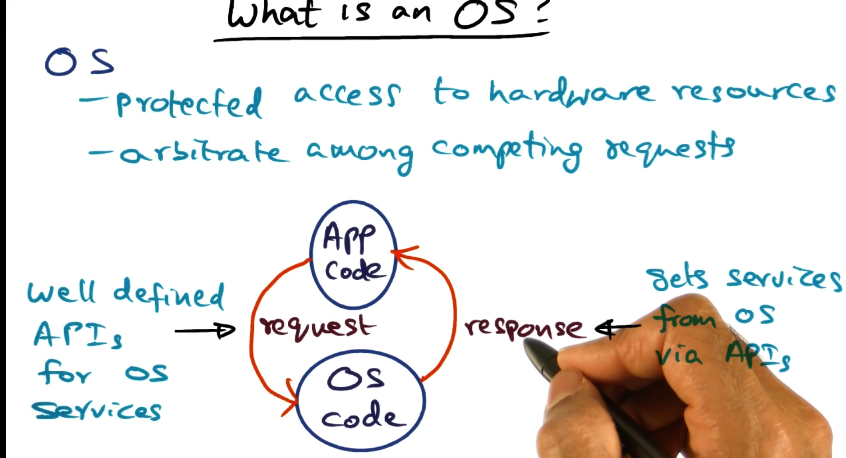 What is an OS?
OS
- protected access to hardware resources
- arbitrate among competing requests
App
Code
well defined
APIs
for OS
services
request
response
gets services
from OS
via APIs
OS
code